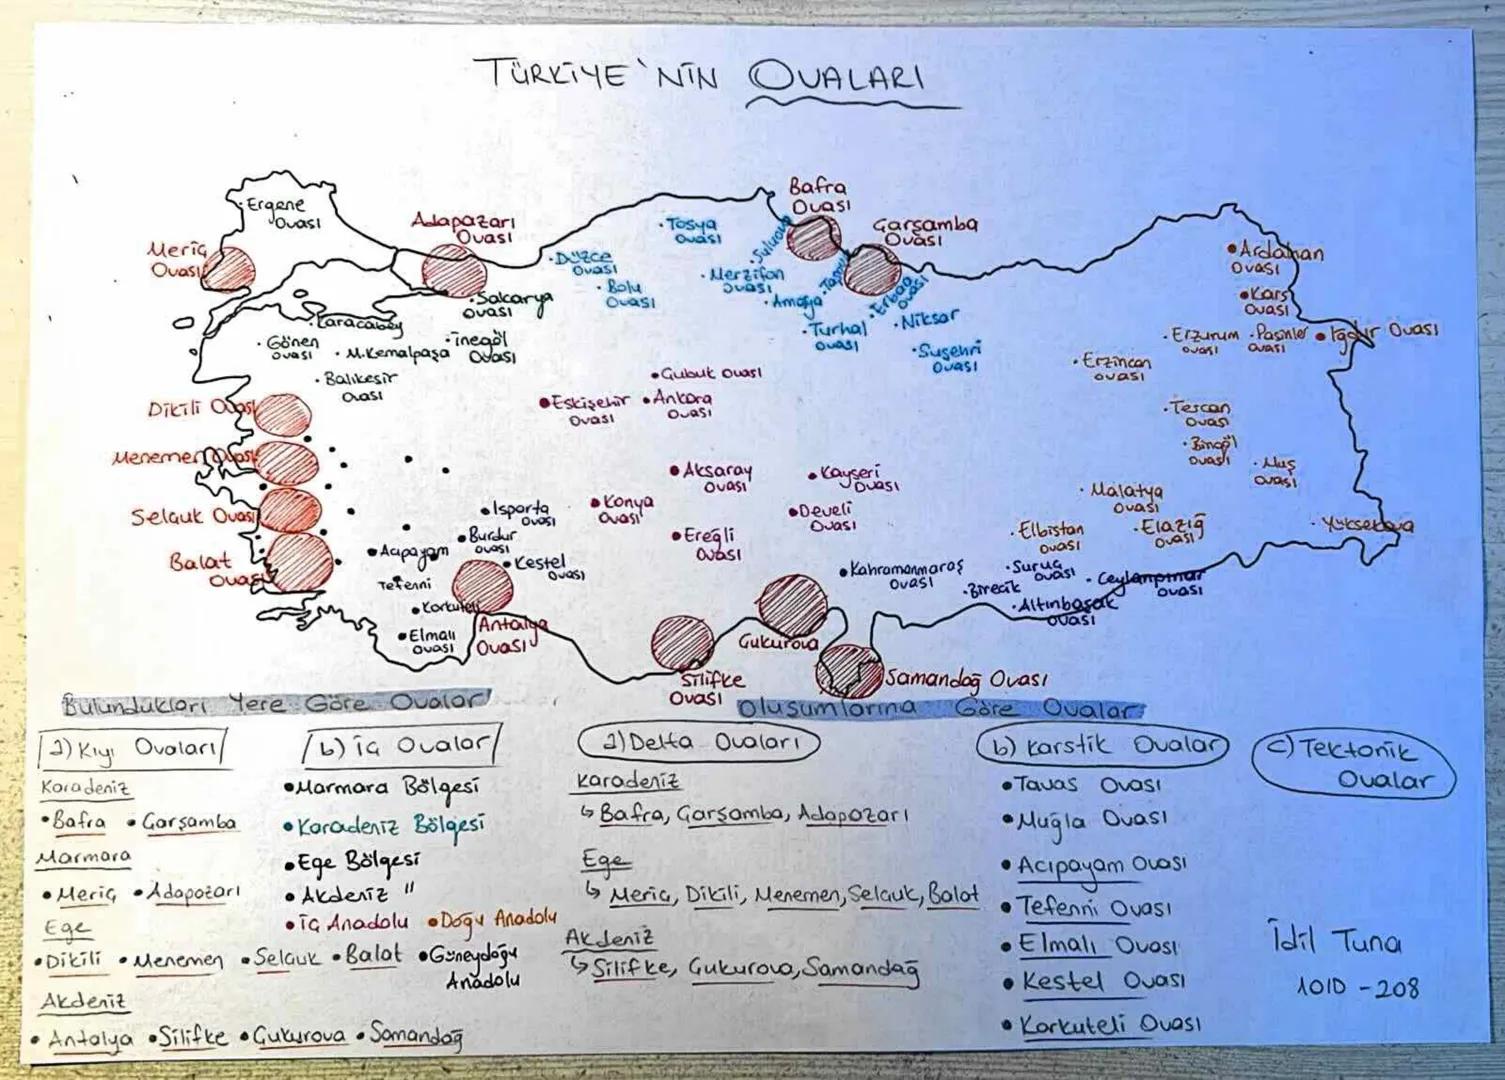 TÜRKİYE'NİN OVALARI
Ergene
Ovası
Meriç
Ovası
Adapazarı
Ovası
Sakarya
ovası
Düzce
ovası
Bolu
Ovası
Tosya
Ovası
Suluova
Merzifon
ovası
Amasya
Bafra
Ovası
Çarşamba
Ovası
Erbaa
ovası
Turhal
ovası
Niksar
Suşehri
Ovası
Ardahan
Ovası
Kars
Ovası
Erzurum
ovası
Pasinler
ovası
Iğdır Ovası
Erzincan
ovası
Tercan
Ovası
Bingöl
Ovası
Muş
Ovası
Malatya
Ovası
Elazığ
Ovası
Elbistan
ovası
Yüksekova
Karacabey
Gönen
ovası
M.Kemalpaşa
İnegöl
Ovası
Balıkesir
Ovası
Çubuk Ovası
Eskişehir
Ovası
Ankara
Ovası
Dikili Ovası
Menemen Ovası
Selçuk Ovası
Balat
Ovası
Aksaray
Ovası
Kayseri
Ovası
Konya
Ovası
Develi
Ovası
Ereğli
Ovası
Isparta
ovası
Burdur
ovası
Acıpayam
Kestel
ovası
Tefenni
Korkuteli
Elmalı
ovası
Antalya
Ovası
Silifke
Ovası
Çukurova
Samandağ Ovası
Kahramanmaraş
ovası
Suruç
ovası
Birecik
Ceylanpınar
ovası
Altınbaşak
ovası
Bulundukları Yere Göre Ovalar
a) Kıyı Ovaları
Karadeniz
• Bafra • Çarşamba
Marmara
• Meriç • Adapazarı
Ege
• Dikili • Menemen • Selçuk • Balat
Akdeniz
• Antalya • Silifke • Çukurova • Samandağ
b) İç Ovalar
• Marmara Bölgesi
• Karadeniz Bölgesi
• Ege Bölgesi
• Akdeniz "
• İç Anadolu • Doğu Anadolu
• Güneydoğu
Anadolu
Oluşumlarına Göre Ovalar
a) Delta Ovaları
Karadeniz
↳ Bafra, Çarşamba, Adapazarı
Ege
↳ Meriç, Dikili, Menemen, Selçuk, Balat
Akdeniz
↳ Silifke, Çukurova, Samandağ
b) Karstik Ovalar
• Tavas Ovası
• Muğla Ovası
• Acıpayam Ovası
• Tefenni Ovası
• Elmalı Ovası
• Kestel Ovası
• Korkuteli Ovası
c) Tektonik
Ovalar
İdil Tuna
101D - 208